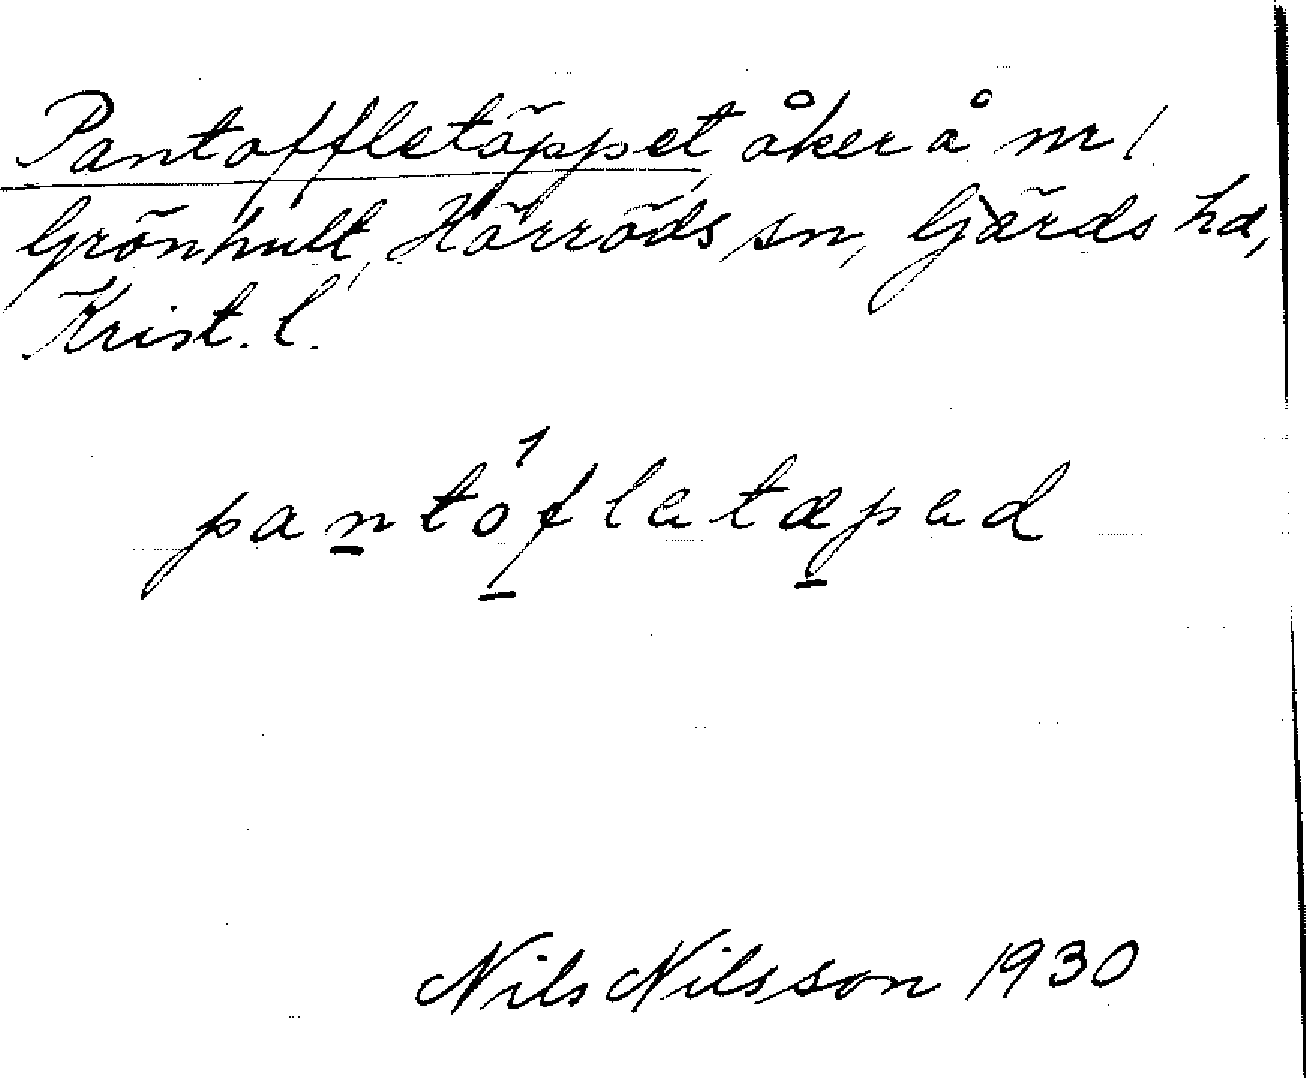 Pantoffletäppet åker å nr 1
Grönhult, Hörröds sn, Gärds hd,
Krist. l.
pantófletæped
Nils Nilsson 1930